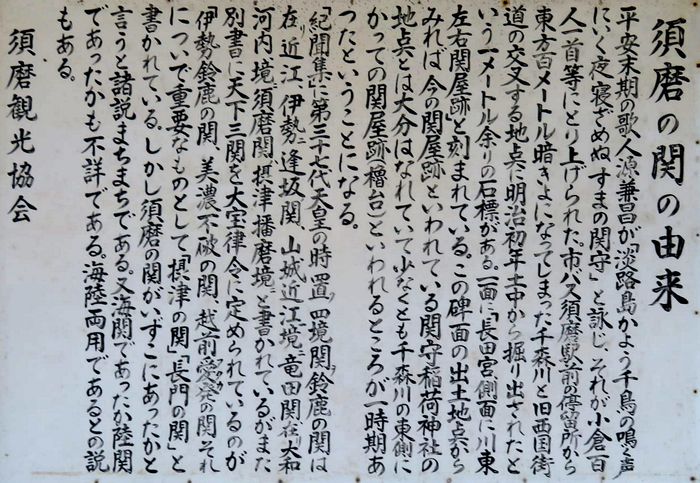 須磨の関の由来
平安末期の歌人源兼昌が「淡路島かよう千鳥の鳴く声
にいく夜寝ざめぬすまの関守」と詠じ、それが小倉百
人一首等にとり上げられた。市バス須磨駅前の停留所から
東方百メートル暗きょになってしまった千森川と旧西国街
道の交叉する地点に明治初年土中から掘り出されたと
いう一メートル余りの石標がある。一面に「長田宮側面に川東
左右関屋跡と刻まれている。この碑面の出土地点から
みれば、今の関屋跡といわれている関守稲荷神社の
地点とは大分はなれていて少なくとも千森川の東側に
かっての関屋跡(櫓台)といわれるところが一時期あ
ったということになる。
「紀聞集」に第三十七代天皇の時置四境関鈴鹿の関は
在近江、伊勢ニ逢坂関、山城近江境ニ竜田関在リ大和
河内ノ境ニ須磨関、摂津ノ播磨境ニと書かれているがまた
別書に天下三関を大宝律令に定められているのが
「伊勢の鈴鹿の関、美濃不破の関、越前愛発の関それ
についで重要なものとして「摂津の関」「長門の関」と
書かれている。しかし須磨の関がいずこにあったかと
言うと諸説まちまちである。又海関であったか陸関
であったかも不詳である。海陸両用であるとの説
もある。
須磨観光協会